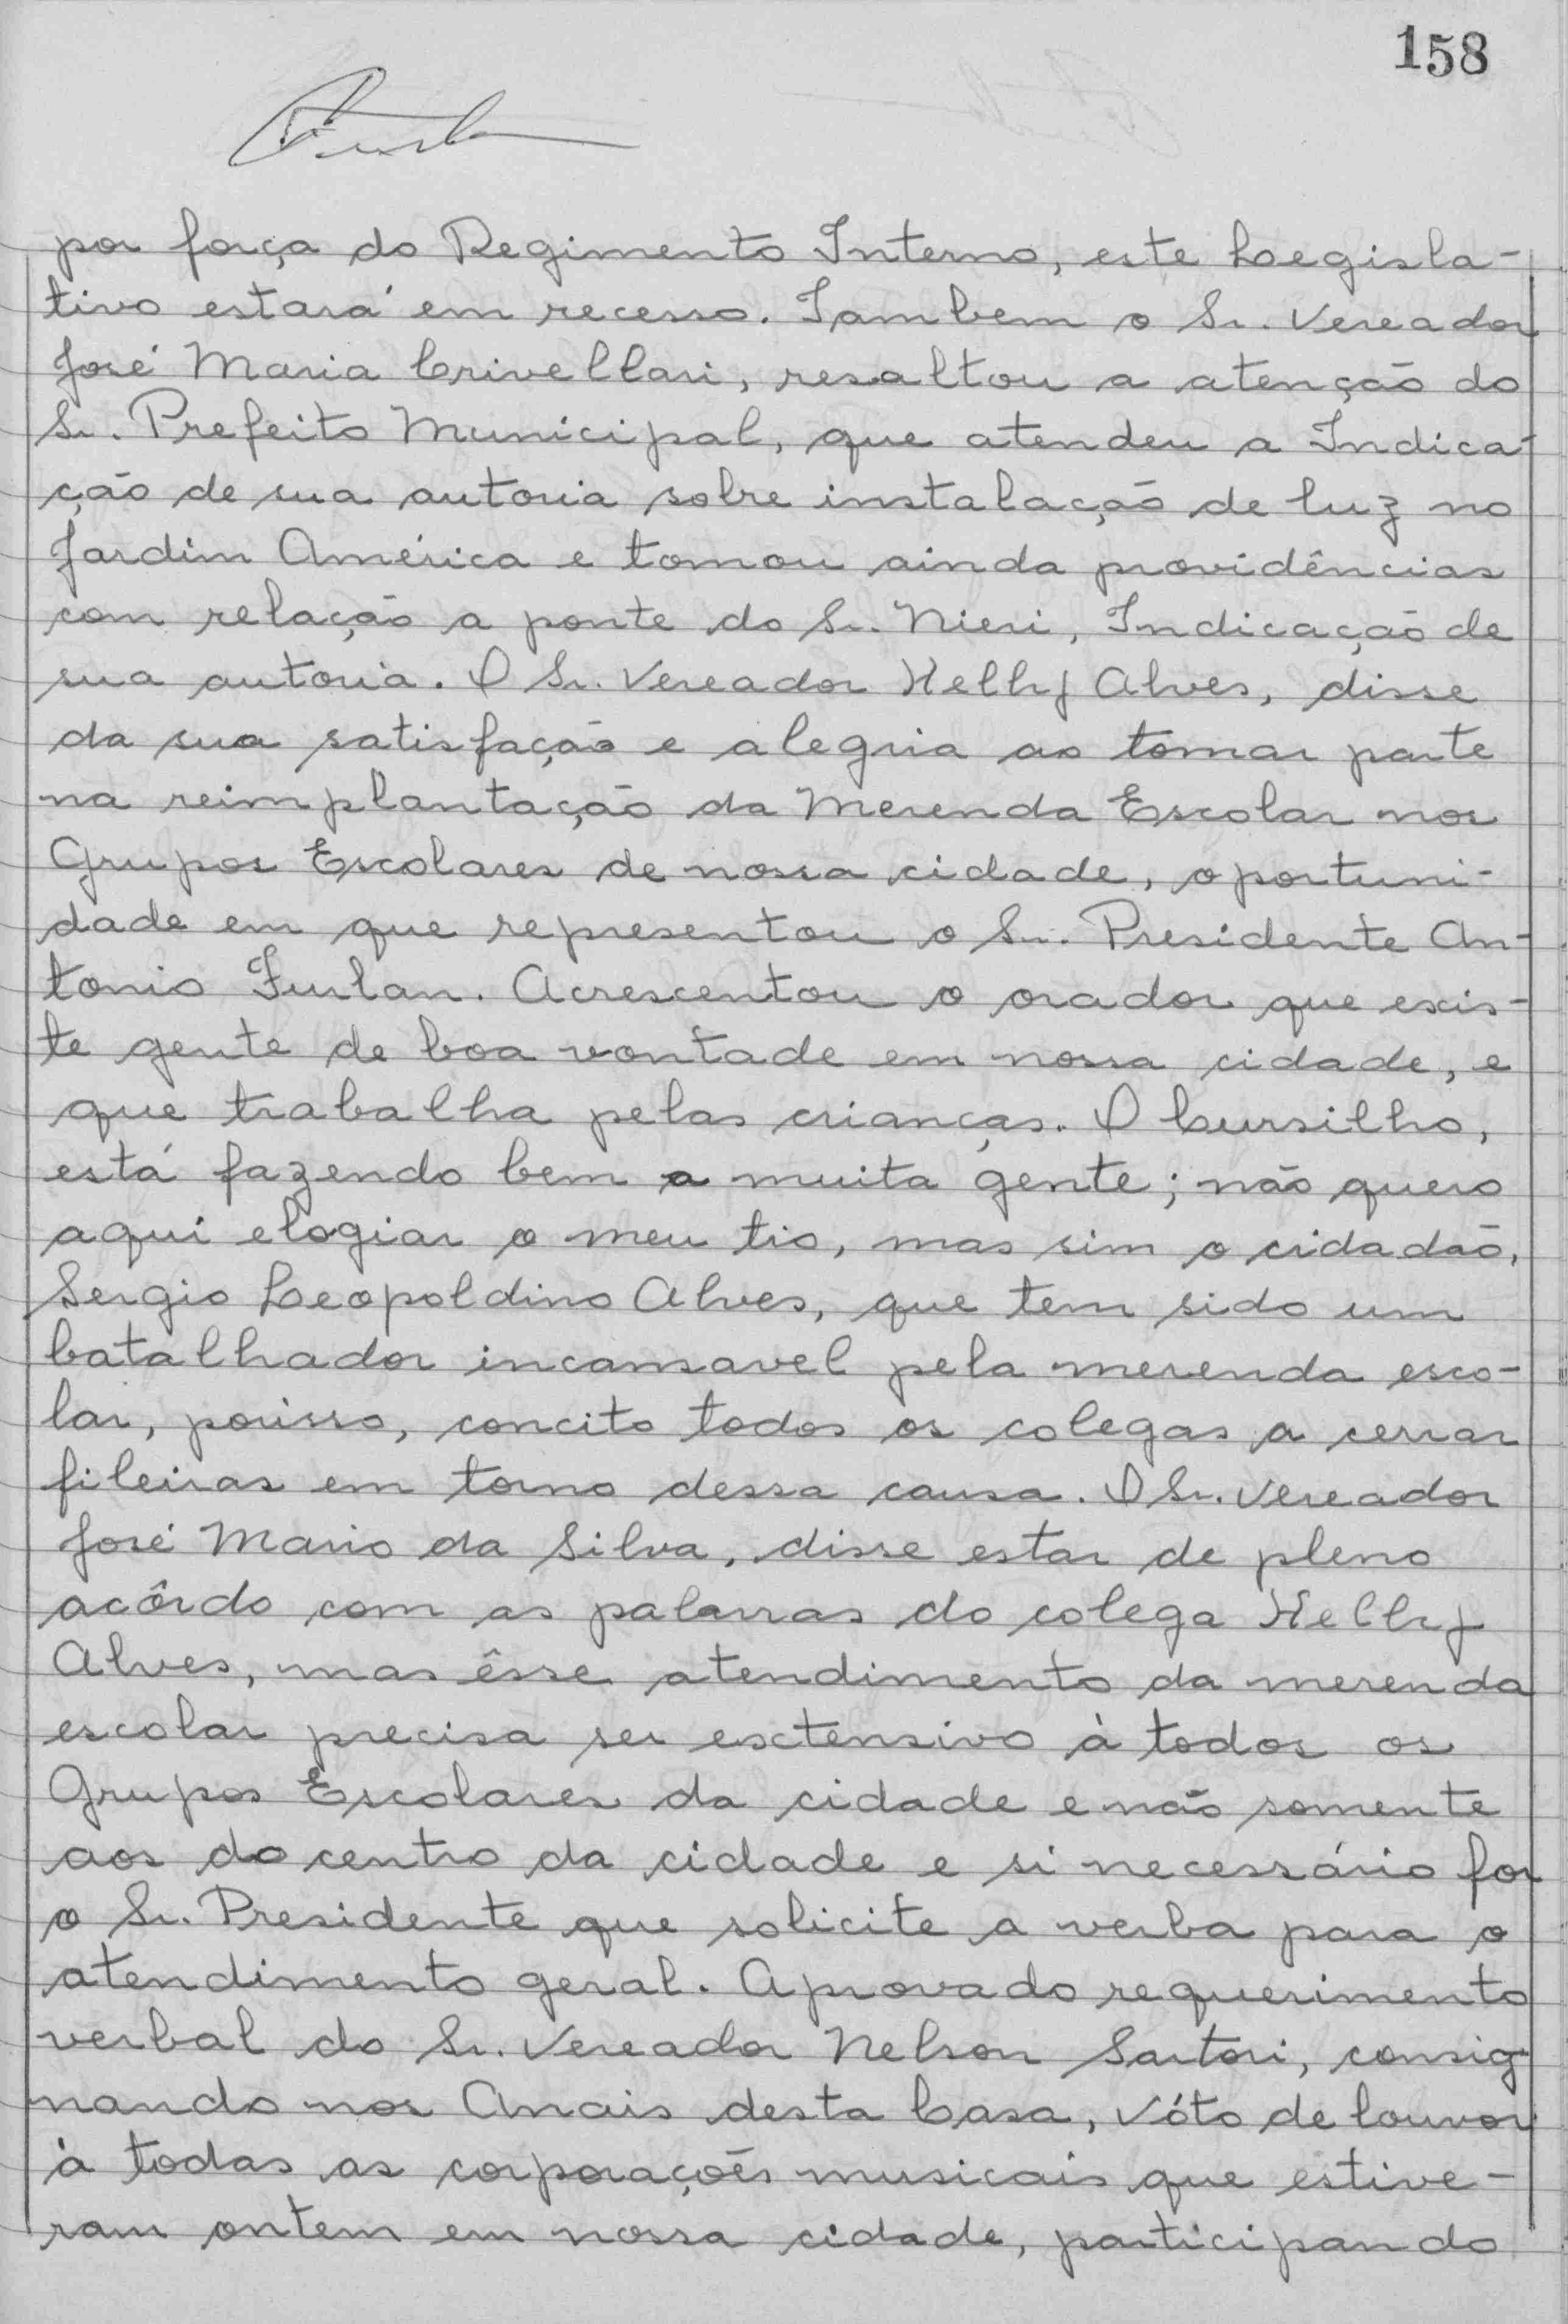 158
por força do Regimento Interno, este Legisla-
tivo estará em recesso. Tambem o Sr. Vereador
José Maria Crivellari, resaltou a atenção do
Sr. Prefeito Municipal, que atendeu a Indica-
ção de sua autoria sobre instalação de luz no
Jardim América e tomou ainda providências
com relação a ponte do Sr. Nieri, Indicação de
sua autoria. O Sr. Vereador Helly Alves, disse
da sua satisfação e alegria ao tomar parte
na reimplantação da Merenda Escolar nos
Grupos Escolares de nossa cidade, oportuni-
dade em que representou o Sr. Presidente An-
tonio Furlan. Acrescentou o orador que exis-
te gente de boa vontade em nossa cidade, e
que trabalha pelas crianças. O Cursilho,
está fazendo bem a muita gente; não quero
aqui elogiar o meu tio, mas sim o cidadão,
Sergio Leopoldino Alves, que tem sido um
batalhador incansavel pela merenda esco-
lar, porisso, concito todos os colegas a cerrar
fileiras em torno dessa causa. O Sr. Vereador
José Mario da Silva, disse estar de pleno
acôrdo com as palavras do colega Helly
Alves, mas êsse atendimento da merenda
escolar precisa ser extensivo à todos os
Grupos Escolares da cidade e não somente
aos do centro da cidade e si necessário for
o Sr. Presidente que solicite a verba para o
atendimento geral. Aprovado requerimento
verbal do Sr. Vereador Nelson Sartori, consig-
nando nos Anais desta Casa, Vóto de louvor
à todas as corporações musicais que estive-
ram ontem em nossa cidade, participando